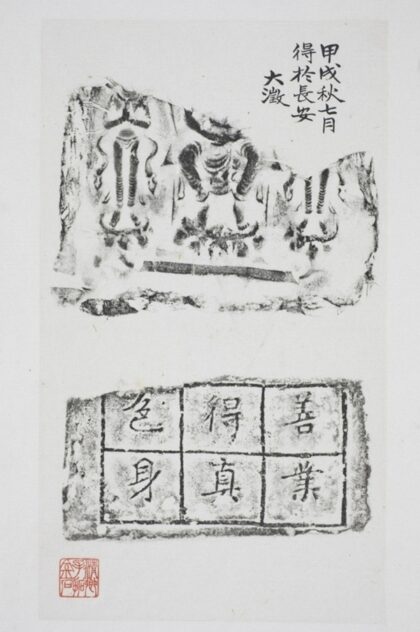 甲戌秋七月
得於長安
大澂
善業
得真
色身